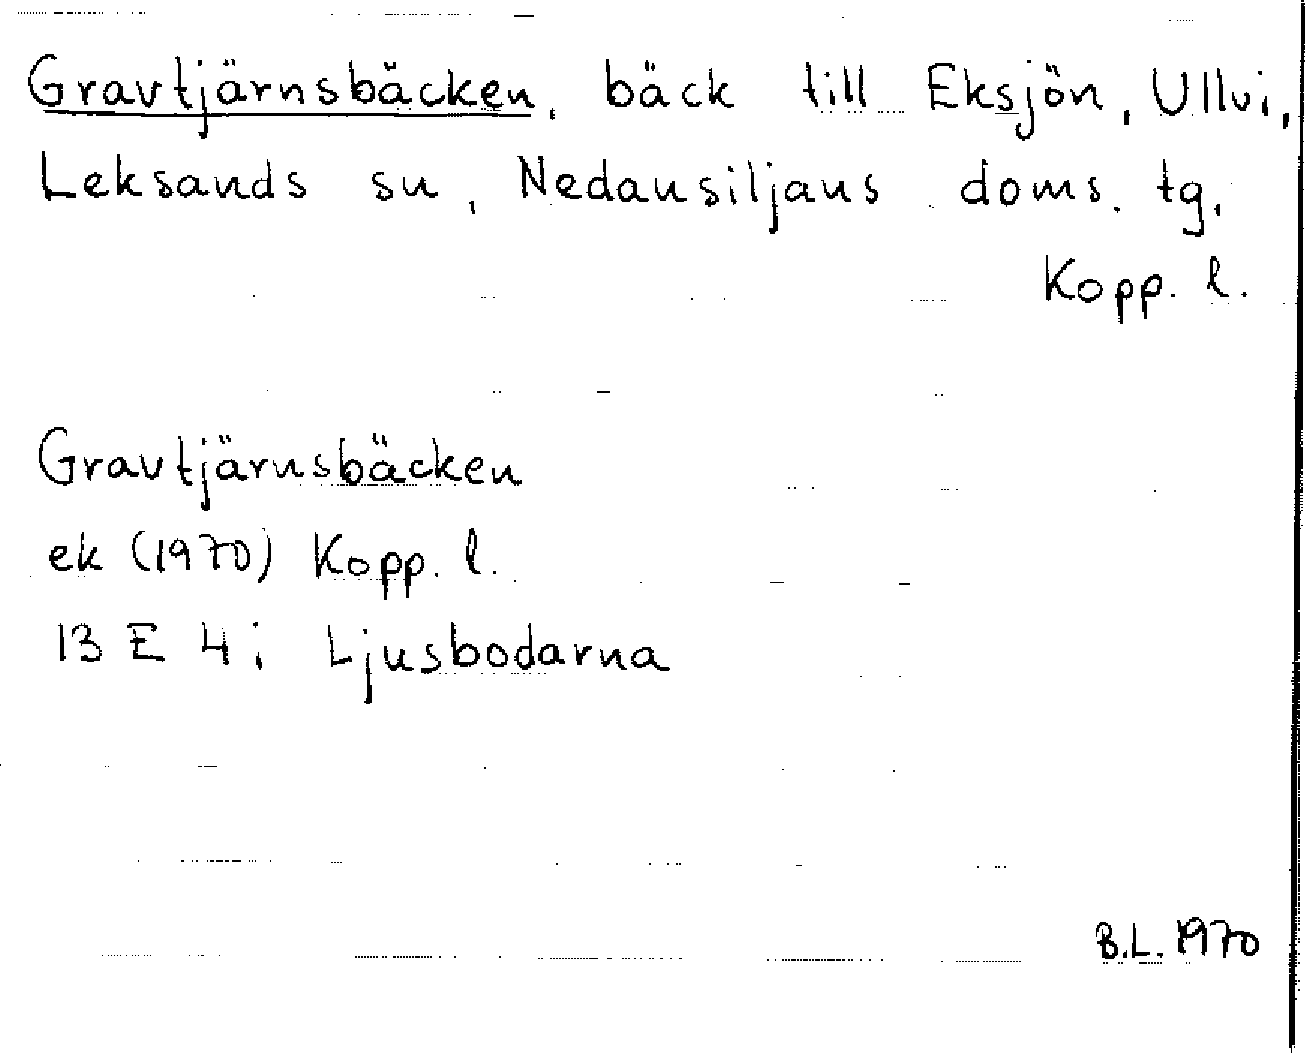 Gravtjärnsbäcken, bäck till Eksjön, Ullvi,
Leksands sn, Nedansiljans doms. tg.
Kopp. l.
Gravtjärnsbäcken
ek (1970) Kopp. l.
13 E 4 i Ljusbodarna
B.L. 1970